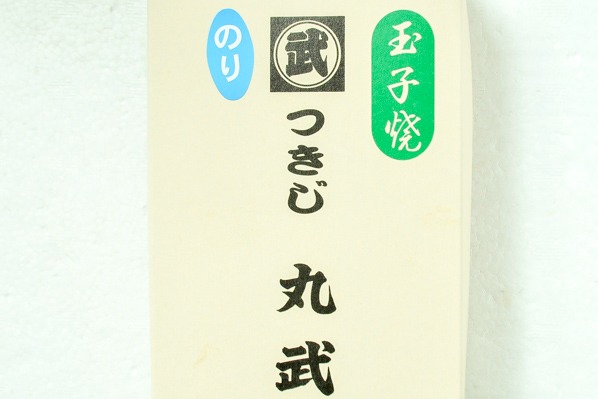 玉子焼
武
つきじ 丸武
のり